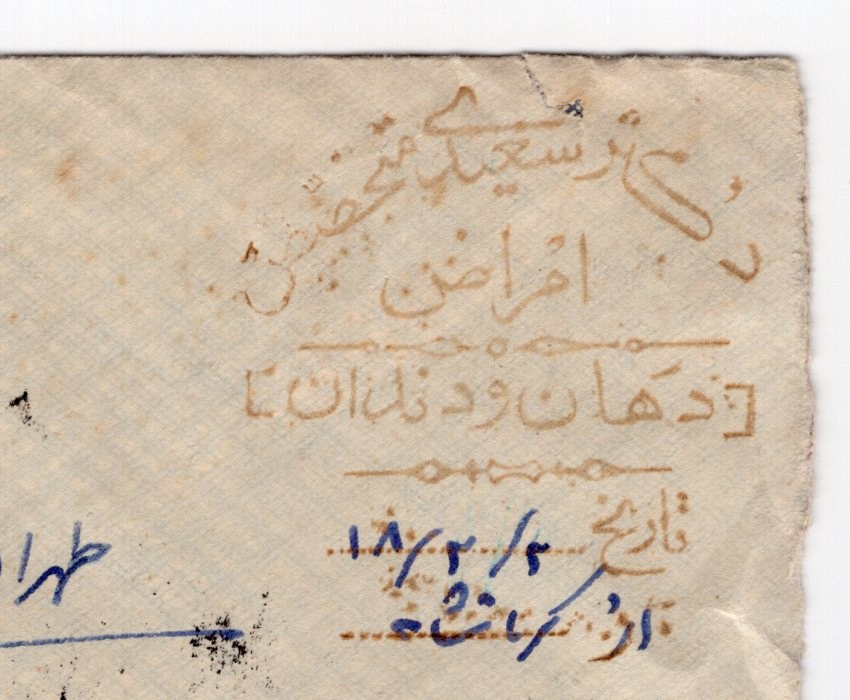 دکتر سعیدی متخصص
امراض
[دهان و دندان]
تاریخ ۱۸/۳/۲
از کرمانشاه
طهران